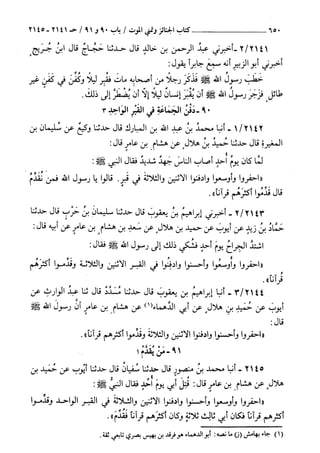 ٦٥٠ ــــــ كتاب الجنائز وتمني الموت / باب ٩٠ و ٩١ / حـ ٢١٤١ ـ ٢١٤٥
٢/٢١٤١ ـ أخبرني عبدُ الرحمن بن خالدٍ قال حدثنا حَجَّاجٌ قال ابنُ جُرَيجٍ
أخبرني أبو الزبيرِ أنه سمعَ جابراً يقول:
خَطَبَ رسولُ اللهِ ﷺ فَذَكَرَ رجلاً من أصحابِهِ ماتَ فقُبِرَ ليلاً وكُفِّنَ في كَفَنٍ غيرِ
طائلٍ فزَجَرَ رسولُ اللهِ ﷺ أن يُقْبَرَ إنسانٌ ليلاً إلَّا أن يُضْطَرَّ إلى ذلك.
٩٠ ـ دَفْنُ الجَمَاعَةِ في القَبْرِ الواحِدِ ٣
١/٢١٤٢ ـ أنبا محمدُ بنُ عبدِ الله بن المبارك قال حدثنا وكيعٌ عن سُليمان بن
المغيرةِ قال حدثنا حُميدُ بنُ هلالٍ عن هشام بن عامرٍ قال:
لمَّا كان يومُ أُحدٍ أصاب الناسَ جَهدٌ شديدٌ فقال النبي ﷺ:
«احفروا وأوسعوا وادفنوا الاثنين والثلاثةَ في قَبرٍ. قالوا يا رسول الله فمن نُقَدِّمُ
قال قَدِّمُوا أكثَرَهُم قرآناً».
٢/٢١٤٣ ـ أخبرني إبراهيمُ بنُ يعقوبَ قال حدثنا سليمانُ بن حَرْبٍ قال حدثنا
حَمَّادُ بنُ زيدٍ عن أيوبَ عن حميد بن هلالٍ عن سَعدِ بن هشام بن عامرٍ عن أبيه قال:
اشتدَّ الجراحُ يومَ أحدٍ فشُكيَ ذلك إلى رسول الله ﷺ فقال:
«احفروا وأوسِعُوا وأحسنوا وادفِنُوا في القبرِ الاثنين والثلاثةَ وقَدِّموا أكثرَهُم
قُرآناً».
٣/٢١٤٤ ـ أنبا إبراهيمُ بن يعقوبَ قال حدثنا مُسَدَّدٌ قال ثنا عبدُ الوارثِ عن
أيوبَ عن حُمَيدِ بنِ هلالٍ عن أبي الدَّهماءِ(١) عن هشام بن عامرٍ أنَّ رسولَ اللهِ ﷺ
قال:
«احفروا وأحسنوا وادفنوا الاثنين والثلاثةَ وقَدِّموا أكثرهم قرآناً».
٩١ ـ مَنْ يُقَدَّمُ ١
٢١٤٥ ـ أنبا محمدُ بن منصورٍ قال حدثنا سفيانُ قال حدثنا أيُّوب عن حُميد بن
هلالٍ عن هشامِ بن عامرٍ قال: قُتِلَ أبي يومَ أُحُدٍ فقال النبيُّ ﷺ:
«احفروا وأوسِعُوا وأحسنوا وادفنوا الاثنين والثلاثةَ في القبرِ الواحدِ وقدِّموا
أكثرهم قرآناً فكان أبي ثالثَ ثلاثةٍ وكان أكثرَهم قرآناً فقُدِّمَ».
(١) جاء بهامش (ز) ما نصه: أبو الدهماء هو قرفة بن بهيس بصري تابعي ثقة.